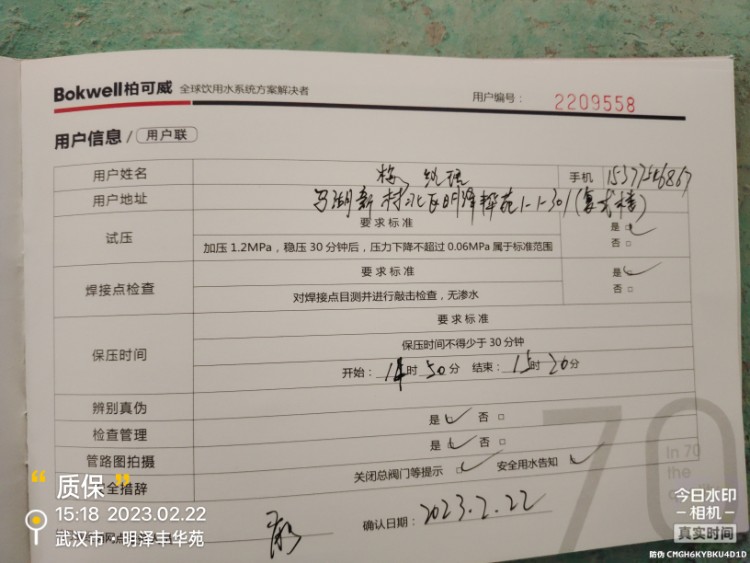 Bokwell柏可威 全球饮用水系统方案解决者 用户编号: 2209558
用户信息 / 用户联
用户姓名 梅 手机
用户地址 马湖新村北区明泽 苑1-1-301(复式楼)
试压 要求标准 是□✓
加压1.2MPa,稳压30分钟后,压力下降不超过0.06MPa属于标准范围 否□
焊接点检查 要求标准 是□✓
对焊接点目测并进行敲击检查,无渗水 否□
保压时间 要求标准
保压时间不得少于30分钟
开始: 14时50分 结束: 15时20分
辨别真伪 是□✓ 否□
检查管理 是□✓ 否□
管路图拍摄 关闭总阀门等提示 □✓ 安全用水告知 □✓
全措辞
网点 确认日期: 2023.2.22
70
In 70
the
质保
15:18 2023.02.22
武汉市·明泽丰华苑
今日水印
相机
真实时间
防伪 CMGH6KYBKU4D1D